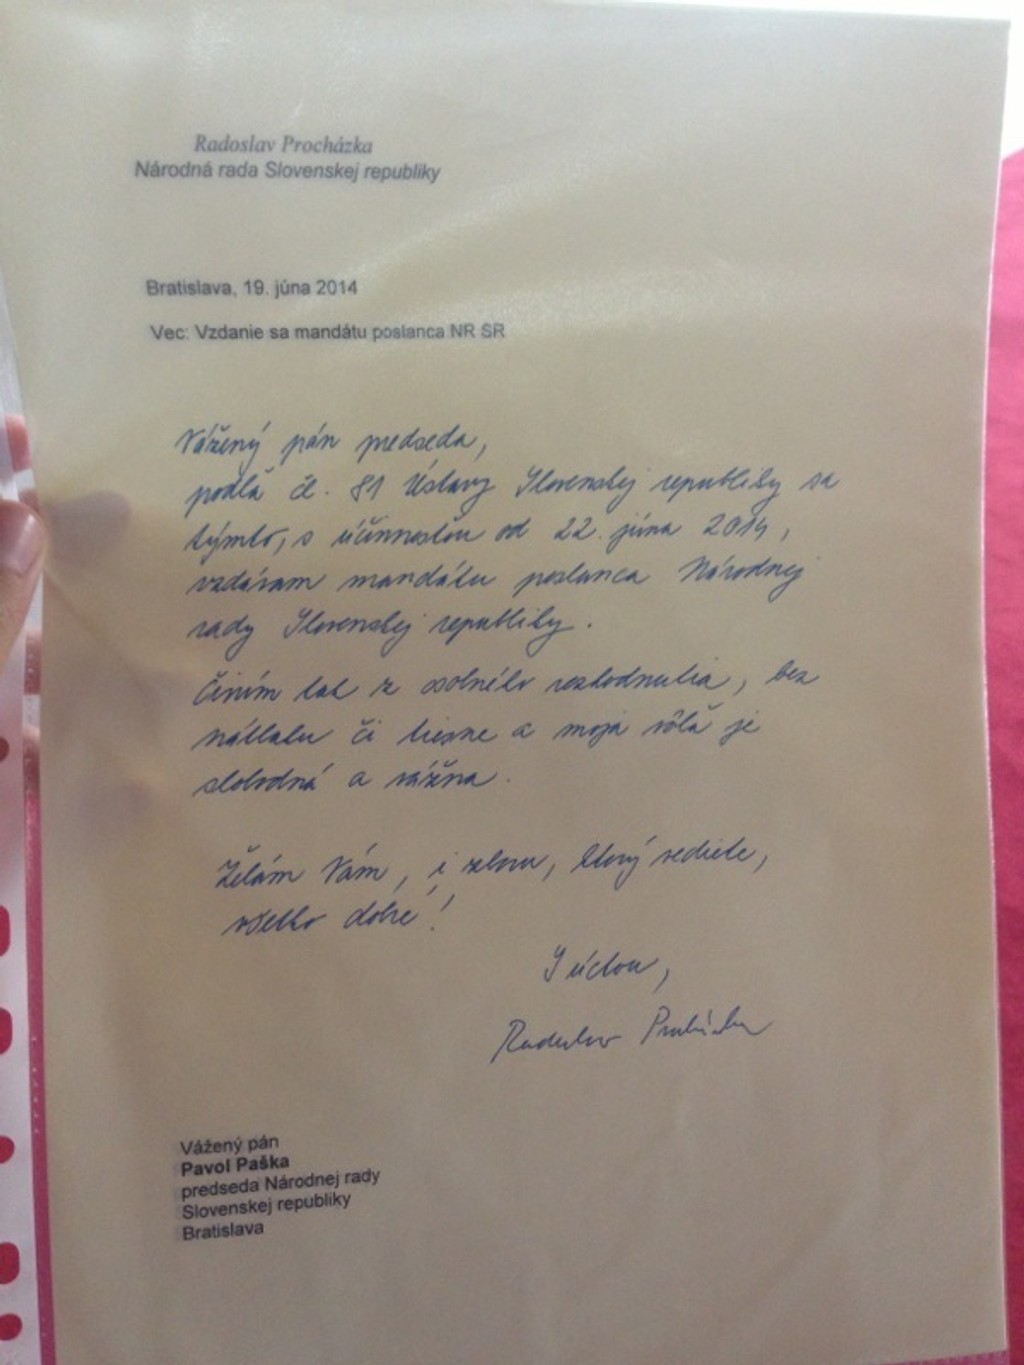 Radoslav Procházka
Národná rada Slovenskej republiky
Bratislava, 19. júna 2014
Vec: Vzdanie sa mandátu poslanca NR SR
Vážený pán predseda,
podľa čl. 81 Ústavy Slovenskej republiky sa
týmto, s účinnosťou od 22. júna 2014,
vzdávam mandátu poslanca Národnej
rady Slovenskej republiky.
Činím tak z osobného rozhodnutia, bez
nátlaku či tiesne a moja vôľa je
slobodná a vážna.
Želám Vám, i zboru, ktorý vediete,
všetko dobré!
S úctou,
Radoslav Procházka
Vážený pán
Pavol Paška
predseda Národnej rady
Slovenskej republiky
Bratislava